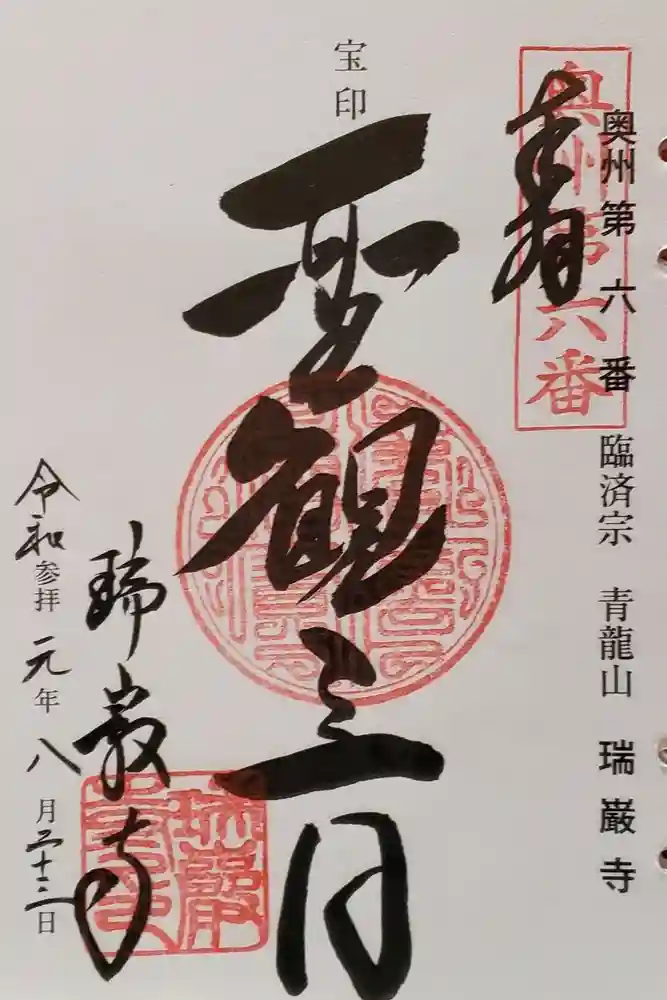 奥州第六番 臨済宗 青龍山 瑞巌寺
奥州第六番
奉拝
宝印
聖観音
瑞巌寺
瑞巌寺
令和参拝元年八月二十三日